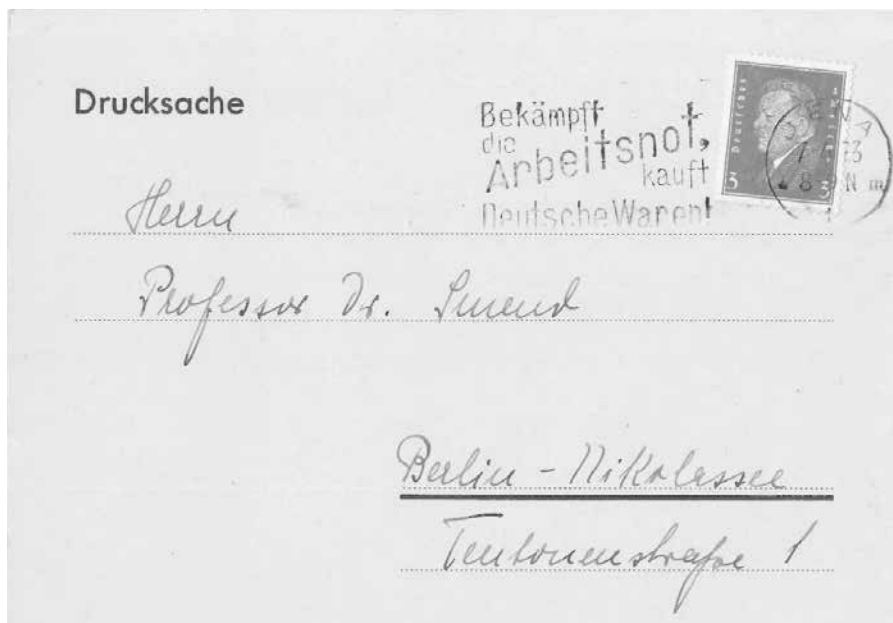 Drucksache
Bekämpft
die
Arbeitsnot,
kauft
Deutsche Waren!
Deutsches Reich
3 3
JENA
8-9 N m
Herrn
Professor Dr. Smend
Berlin - Nikolassee
Teutonenstraße 1